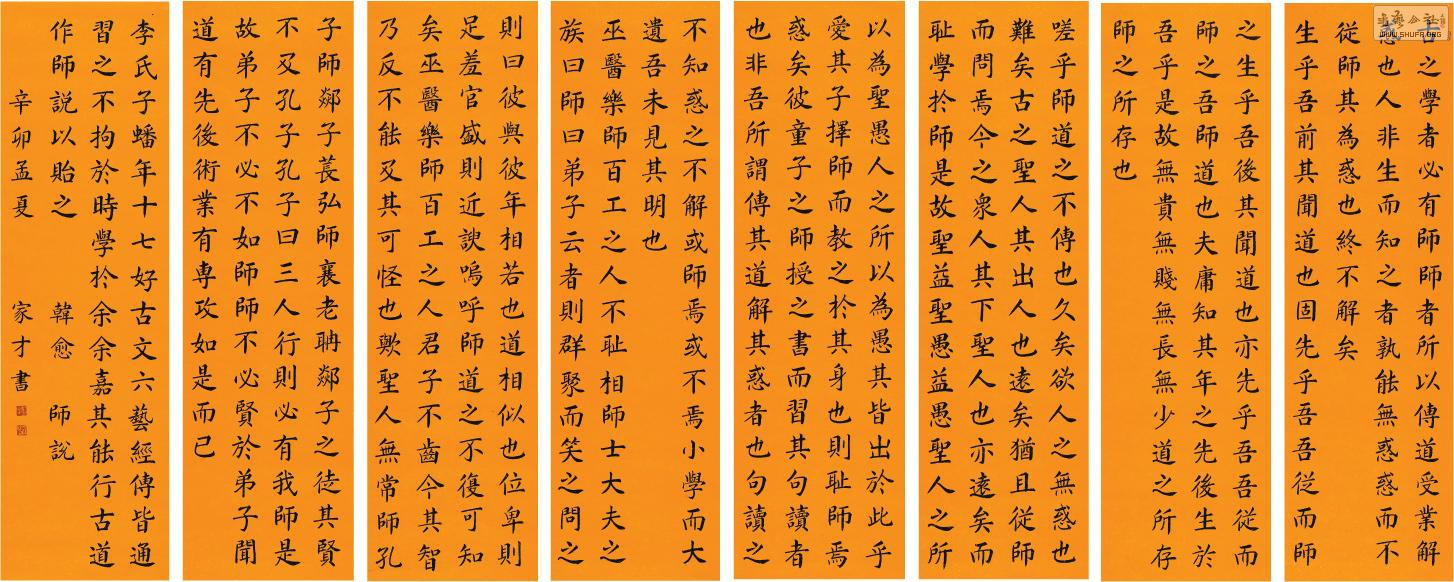 古之學者必有師師者所以傳道受業解
惑也人非生而知之者孰能無惑惑而不
從師其為惑也終不解矣
生乎吾前其聞道也固先乎吾吾從而師
之生乎吾後其聞道也亦先乎吾吾從而
師之吾師道也夫庸知其年之先後生於
吾乎是故無貴無賤無長無少道之所存
師之所存也
嗟乎師道之不傳也久矣欲人之無惑也
難矣古之聖人其出人也遠矣猶且從師
而問焉今之衆人其下聖人也亦遠矣而
耻學扵師是故聖益聖愚益愚聖人之所
以為聖愚人之所以為愚其皆出於此乎
愛其子擇師而教之於其身也則耻師焉
惑矣彼童子之師授之書而習其句讀者
也非吾所謂傳其道解其惑者也句讀之
不知惑之不解或師焉或不焉小學而大
遺吾未見其明也
巫醫樂師百工之人不耻相師士大夫之
族曰師曰弟子云者則群聚而笑之問之
則曰彼與彼年相若也道相似也位卑則
足羞官盛則近諛嗚呼師道之不復可知
矣巫醫樂師百工之人君子不齒今其智
乃反不能及其可怪也歟聖人無常師孔
子師郯子萇弘師襄老聃郯子之徒其賢
不及孔子孔子曰三人行則必有我師是
故弟子不必不如師師不必賢於弟子聞
道有先後術業有專攻如是而已
李氏子蟠年十七好古文六藝經傳皆通
習之不拘於時學扵余余嘉其能行古道
作師說以貽之 韓愈 師說
辛卯孟夏 家才書
WWW.SHUFR.ORG